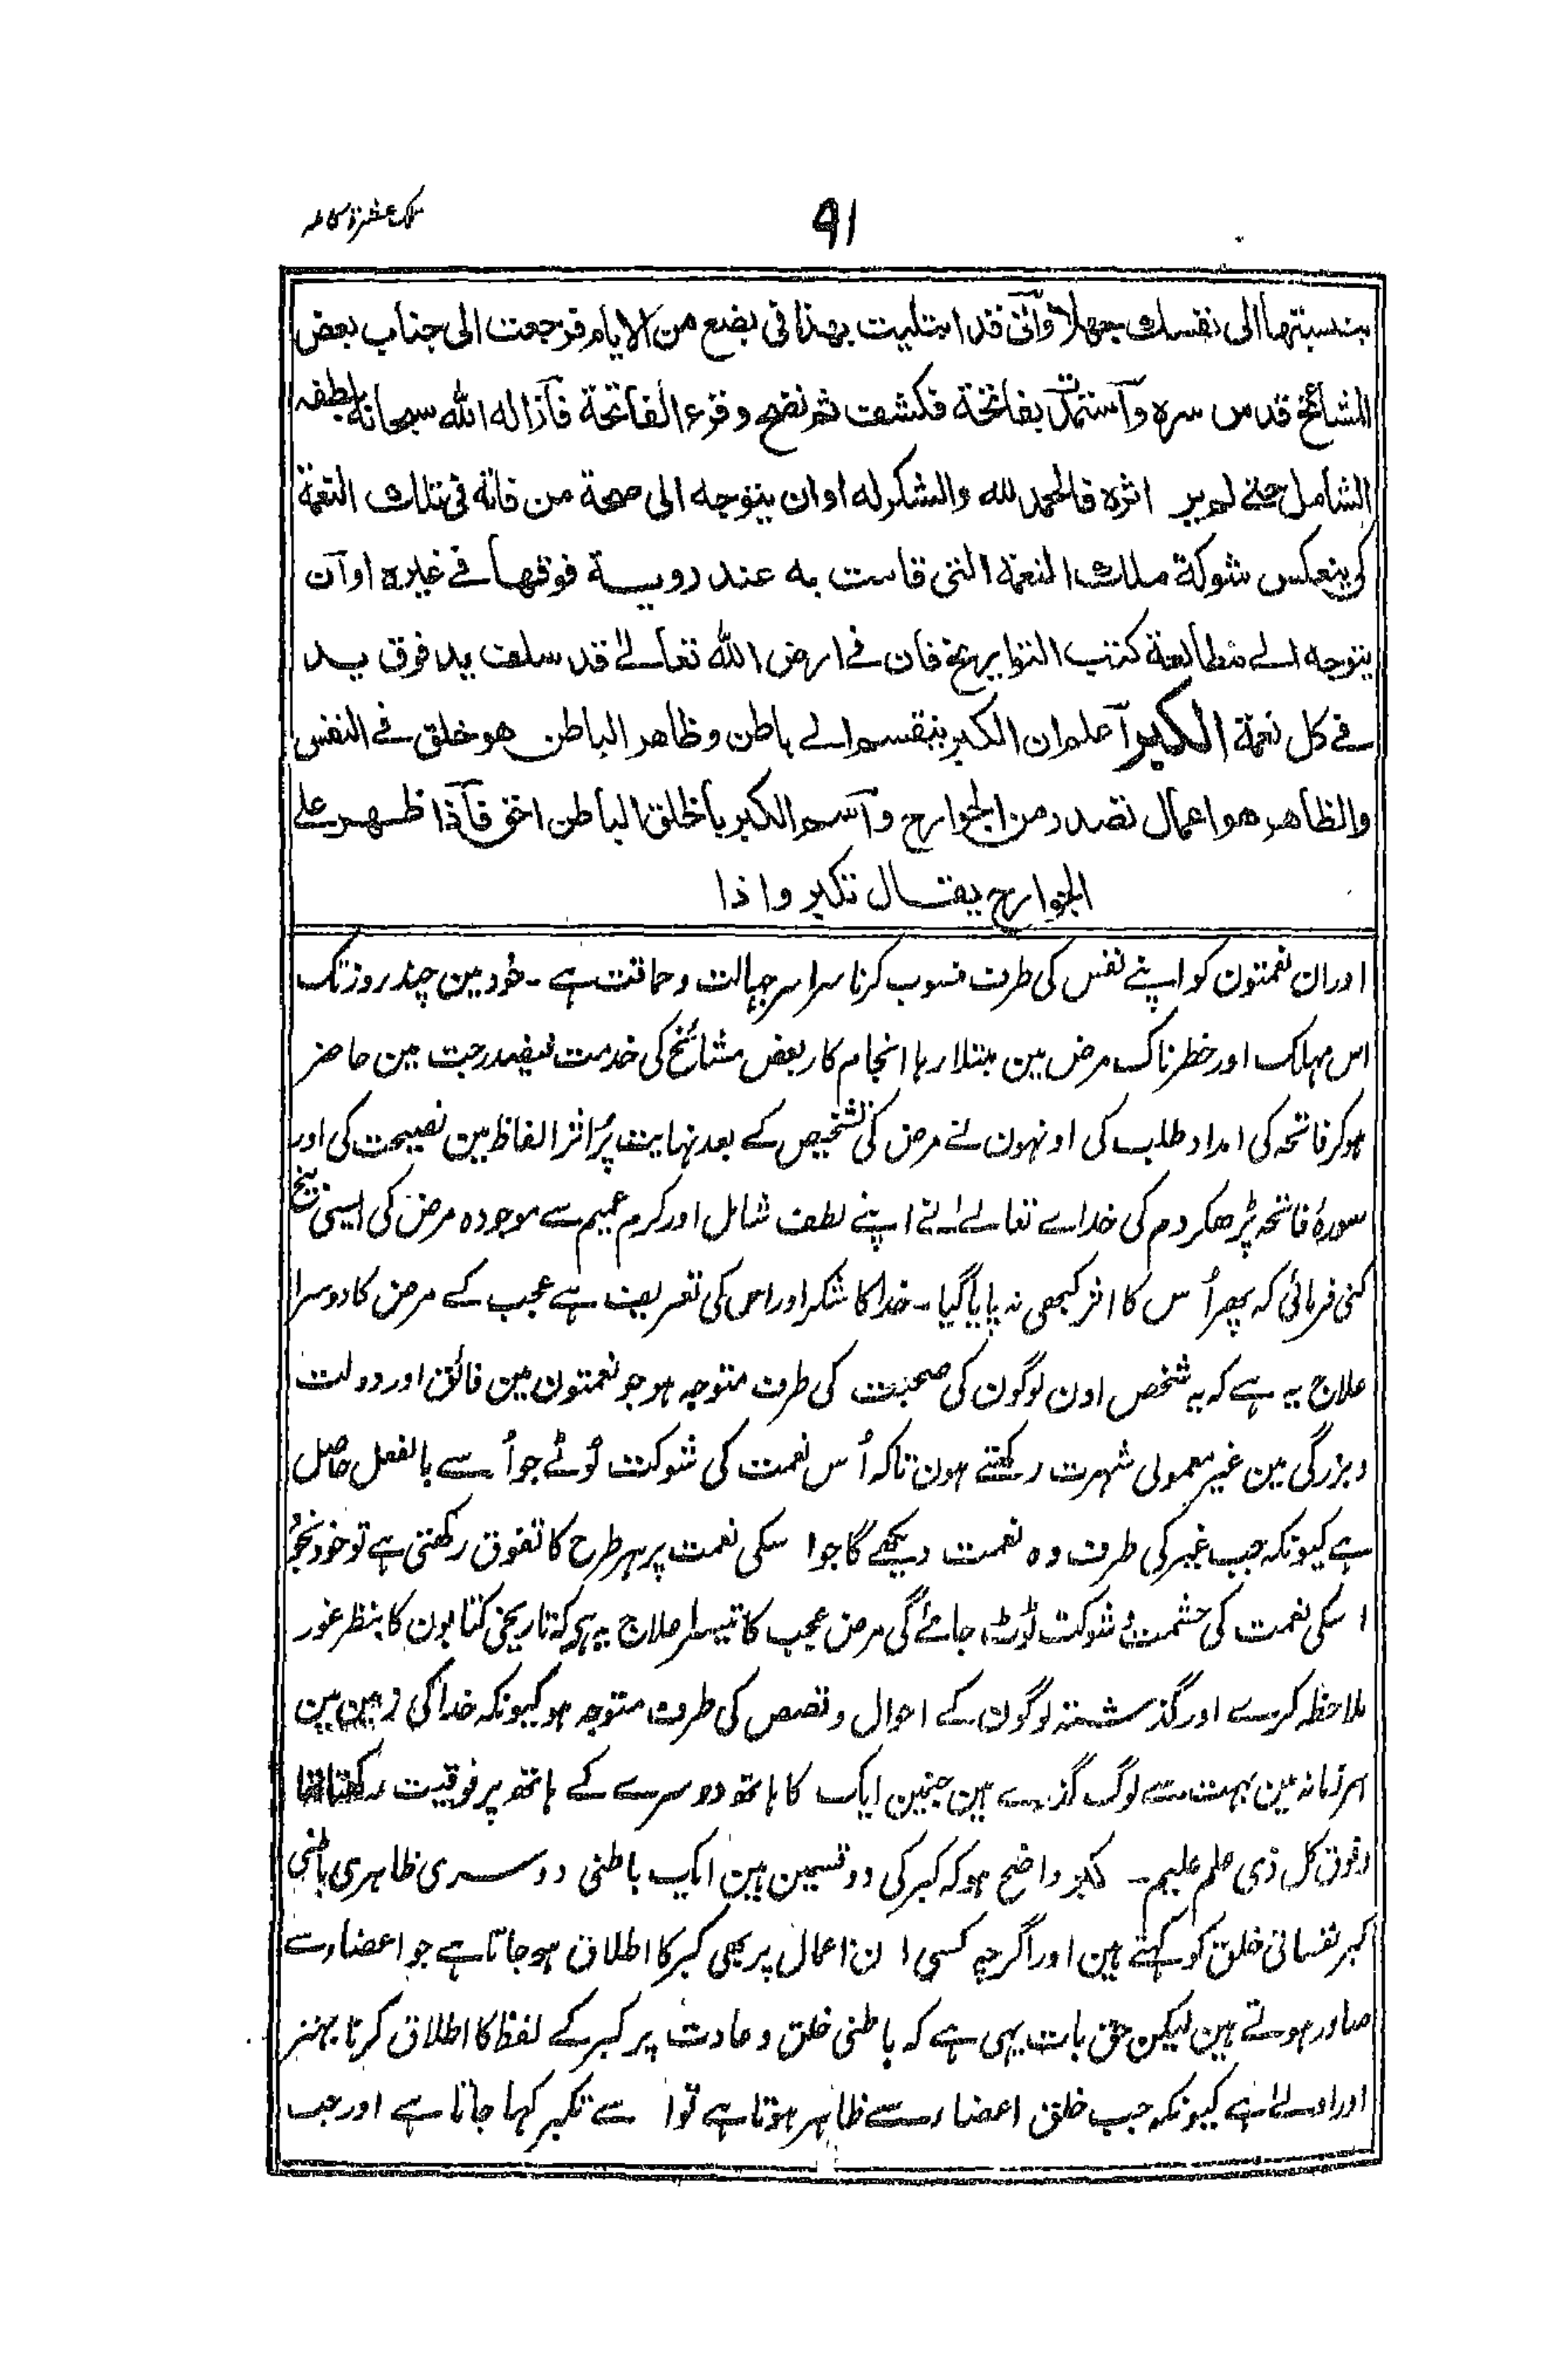 ۹۱
بنسبتها الى نفسك جهلا وآنى قد ابتليت بهذا فى بضع من الايام فرجعت الى جناب بعض
المشائخ قدس سره وآستمدت بفاتحة فكشف ثم نضح وقرء الفاتحة فآزاله الله سبحانه بلطفه
الشامل حتى لم ير اثره فالحمد لله والشكر له او ان يتوجه الى صحة من فاته فى تلك النعمة
كى ينعكس شوكة ملك النعمة التى قاست به عند روية فوقها فى غيره او آن
يتوجه الى مطالعة كتب التواريخ فان فى ارض الله تعالى قد سلف يد فوق يد
فى كل نعمة الكبر آعلم ان الكبر ينقسم الى باطن وظاهر الباطن هو خلق فى النفس
والظاهر هو اعمال تصدر من الجوارح وآسم الكبر بالخلق الباطن احق فآذا ظهر على
الجوارح يقال تكبر واذا
اور ان نعمتون کو اپنے نفس کی طرف منسوب کرنا سراسر جہالت و حماقت ہے ۔ خود مین چند روز تک
اس مہلک اور خطرناک مرض مین مبتلا رہا انجام کار بعض مشائخ کی خدمت فیضدرجت مین حاضر
ہوکر فاتحہ کی امداد طلب کی اونہون نے مرض کی تشخیص کے بعد نہایت پُراثر الفاظ مین نصیحت کی اور
سورۂ فاتحہ پڑھکر دم کی خداے تعالےٰ نے اپنے لطف شامل اور کرم عمیم سے موجودہ مرض کی ایسی بیخ
کنی فرمائی کہ پھر اُس کا اثر کبھی نہ پایا گیا ۔ خدا کا شکر اور اس کی تعریف ہے عجب کے مرض کا دوسرا
علاج یہ ہے کہ یہ شخص اون لوگون کی صحبت کی طرف متوجہ ہو جو نعمتون مین فائق اور دولت
و بزرگی مین غیر معمولی شہرت رکھتے ہون تاکہ اُس نعمت کی شوکت ٹوٹے جو اُسے بالفعل حاصل
ہے کیونکہ جب غیر کی طرف وہ نعمت دیکھے گا جو اسکی نعمت پر ہر طرح کا تفوق رکھتی ہے تو خود بخود
اسکی نعمت کی حشمت و شوکت ٹوٹ جائے گی مرض عجب کا تیسرا علاج یہ ہی کہ تاریخی کتابون کا بنظر غور
ملاحظہ کرے اور گذشتہ لوگون کے احوال و قصص کی طرف متوجہ ہو کیونکہ خدا کی زمین مین
ہر زمانہ مین بہت سے لوگ گذرے ہین جنمین ایک کا ہاتھ دوسرے کے ہاتھ پر فوقیت رکھتا تھا
وفوق کل ذی علم علیم ۔ کبر واضح ہو کہ کبر کی دو قسمین ہین ایک باطنی دوسری ظاہری باطنی
کبر نفسانی خلق کو کہتے ہین اور اگرچہ کسی ان اعمال پر بھی کبر کا اطلاق ہو جاتا ہے جو اعضار سے
صادر ہوتے ہین لیکن حق بات یہی ہے کہ باطنی خلق و عادت پر کبر کے لفظ کا اطلاق کرنا بہتر
اور اولےٰ ہے کیونکہ جب خلق اعضار سے ظاہر ہوتا ہے تو اسے تکبر کہا جاتا ہے اور جب